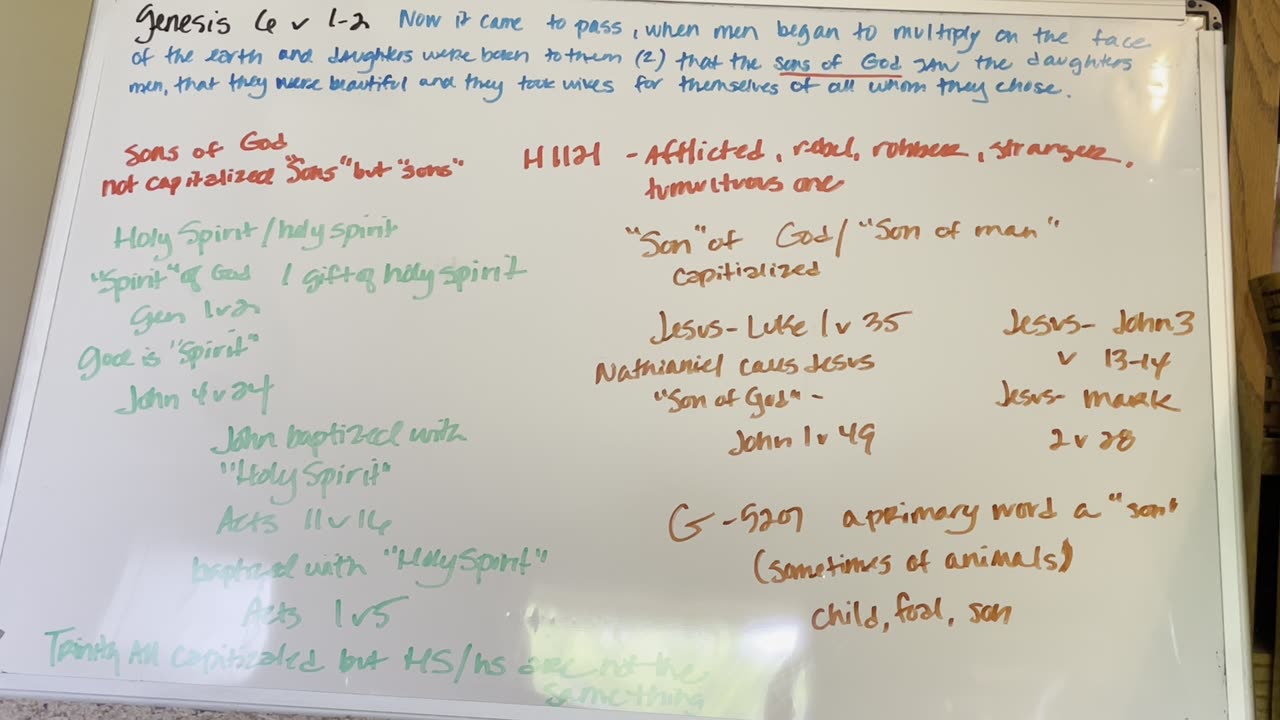 Genesis 6 v 1-2 Now it came to pass, when men began to multiply on the face
of the earth and daughters were born to them (2) that the sons of God saw the daughters
men, that they were beautiful and they took wives for themselves of all whom they chose.
Sons of God
not capitalized "Sons" but "sons"
H1121 - Afflicted, rebel, robber, stranger,
tumultuous one
Holy Spirit/holy spirit
"Spirit" of God / gift of holy spirit
Gen 1v2
God is "Spirit"
John 4v24
John baptized with
"Holy Spirit"
Acts 11v16
baptized with "Holy Spirit"
Acts 1v5
Trinity All capitizaled but HS/hs are not the
same thing
"Son" of God/"Son of man"
capitialized
Jesus- Luke 1v35
Nathianiel calls Jesus
"Son of God" -
John 1v49
Jesus- John 3
v 13-14
Jesus- maark
2v28
G-5207 a primary word a "son"
(sometimes of animals)
child, foal, son